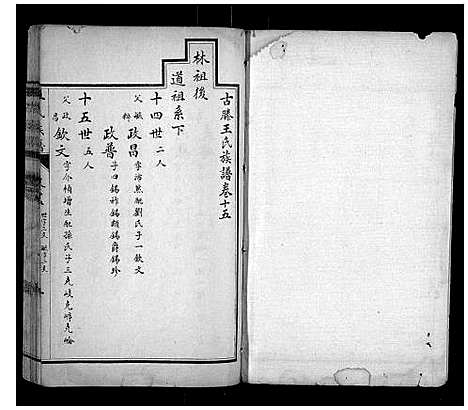 古滕王氏族譜卷十五
林祖後
道祖系下
十四世 二人
父毓 政昌 字浩然配劉氏子一欽文
政普 子四錫祚錫嘏錫爵錫珍
十五世 五人
父政昌 欽文 字介楨增生配孫氏子三克岐克嶧克崙